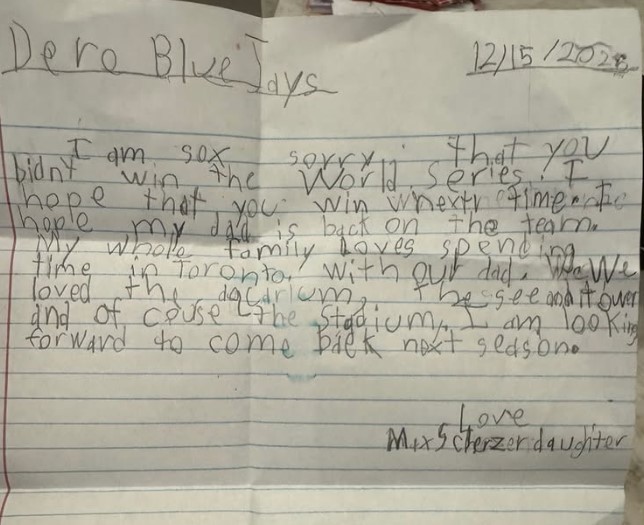 Dero Blue Jays
12/15/202
I am sox sorry that you
bidnt win the World series. I
hope that you win wnext time.
hople my dad is back on the team.
My whole family Loves spending
time in Toronto, with our dad. We
loved the aqcarium, the see and tower
and of couse the stadium. I am looking
forward to come back next season.
Love
Max Scherzer daughter